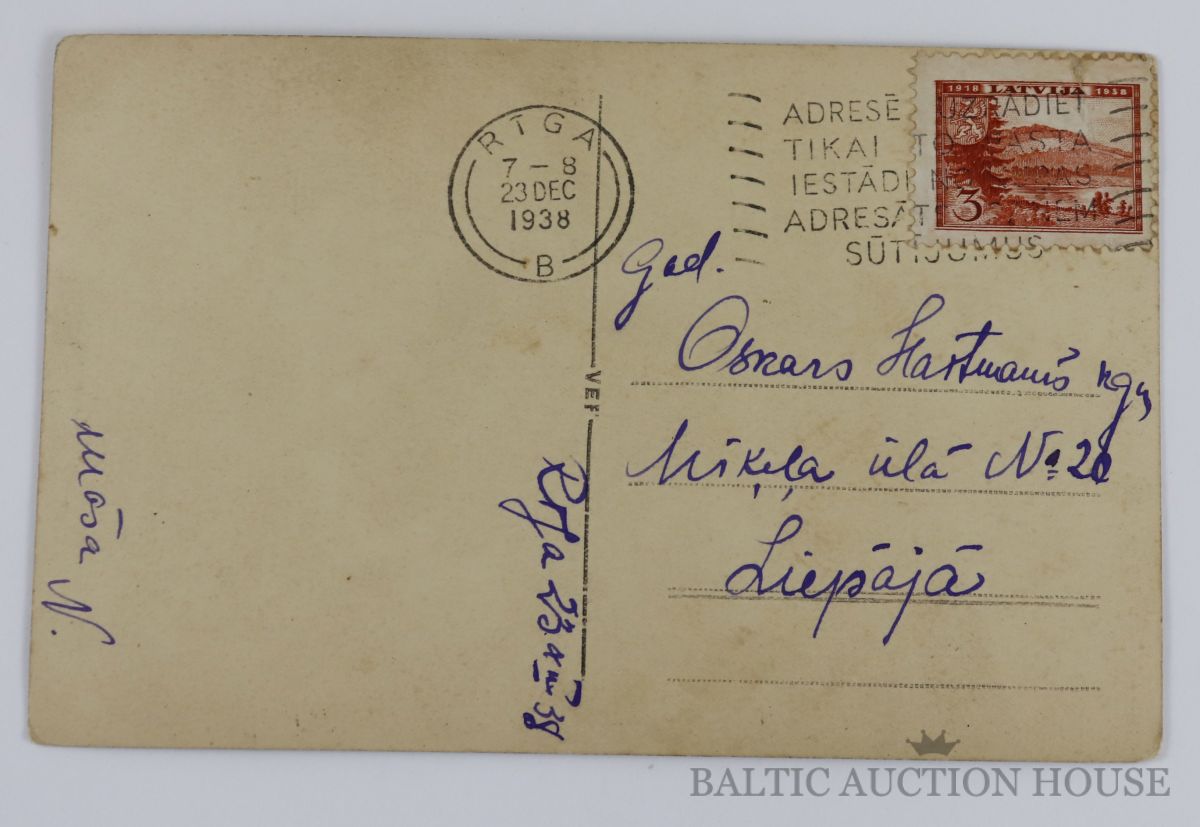 RĪGA
7-8
23 DEC
1938
B
ADRESĒ UZRĀDIET
TIKAI TO PASTA
IESTĀDI
ADRESĀTS
SŪTĪJUMUS
1918 LATVIJA 1938
3
God.
Oskars Hartmanis kgm
Miķeļa ielā No
Liepājā
VEF
Rīgā 23 XII 38
māsa N.
BALTIC AUCTION HOUSE